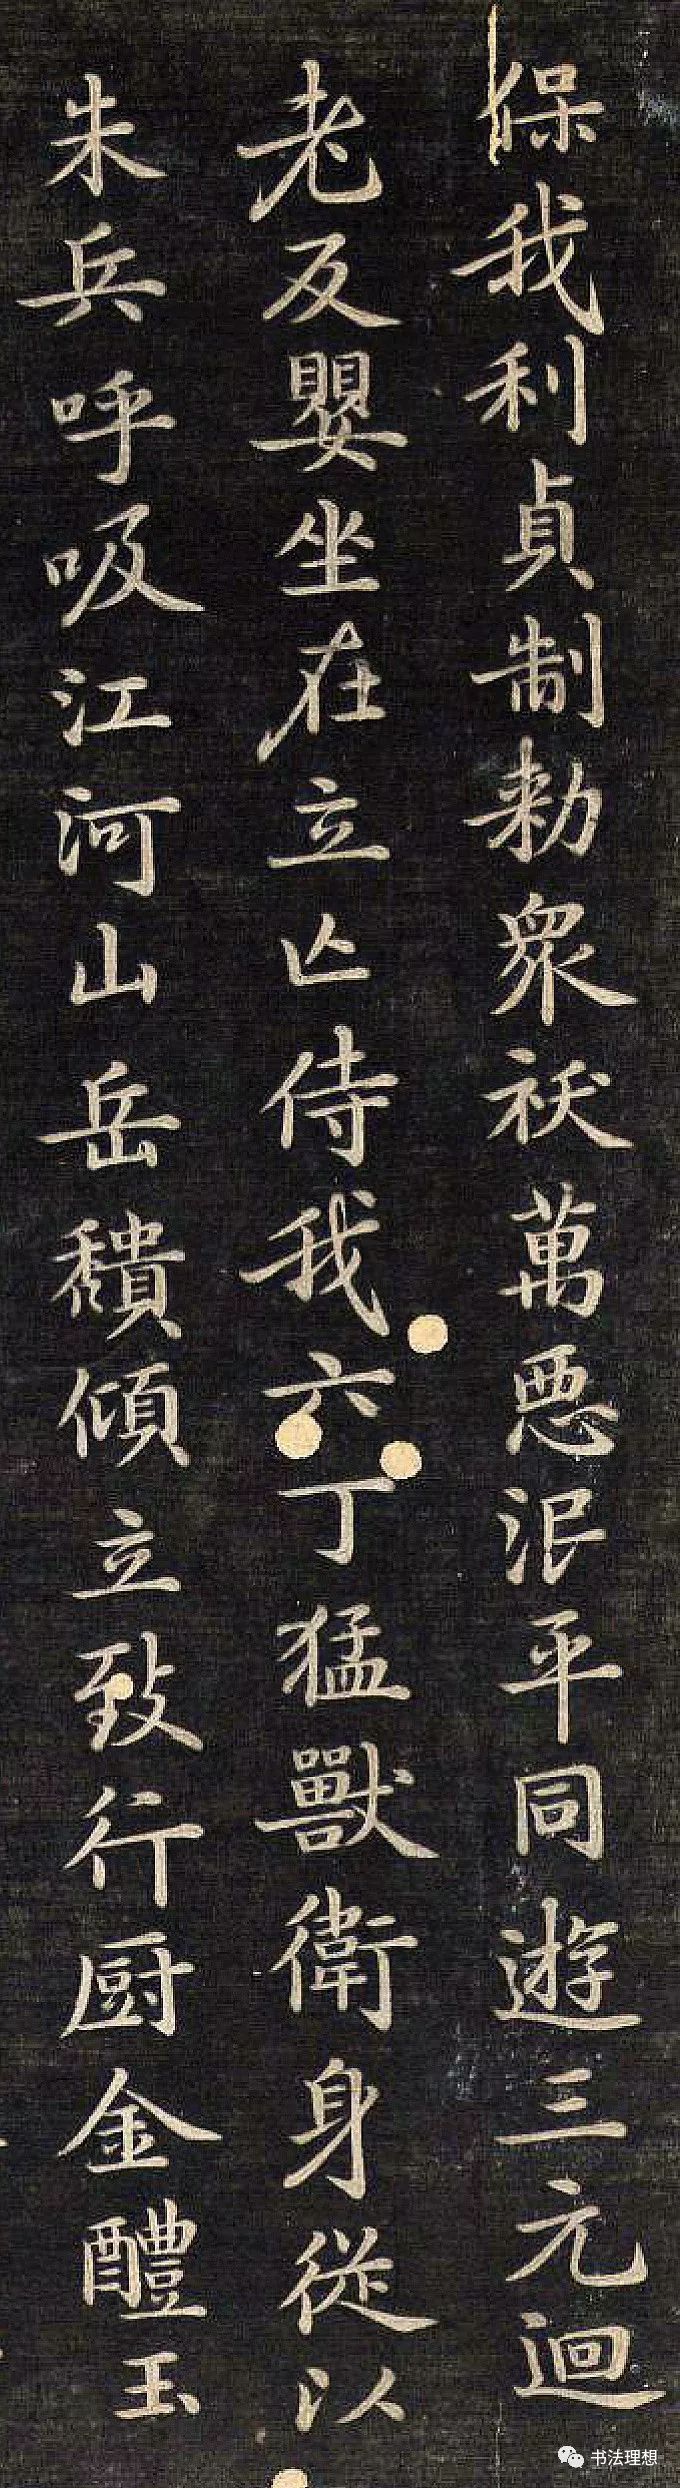 保我利貞制勑衆祅萬惡泯平同遊三元迴
老反嬰坐在立亾侍我六丁猛獸衛身從以
朱兵呼吸江河山岳穨傾立致行厨金醴玉
书法理想